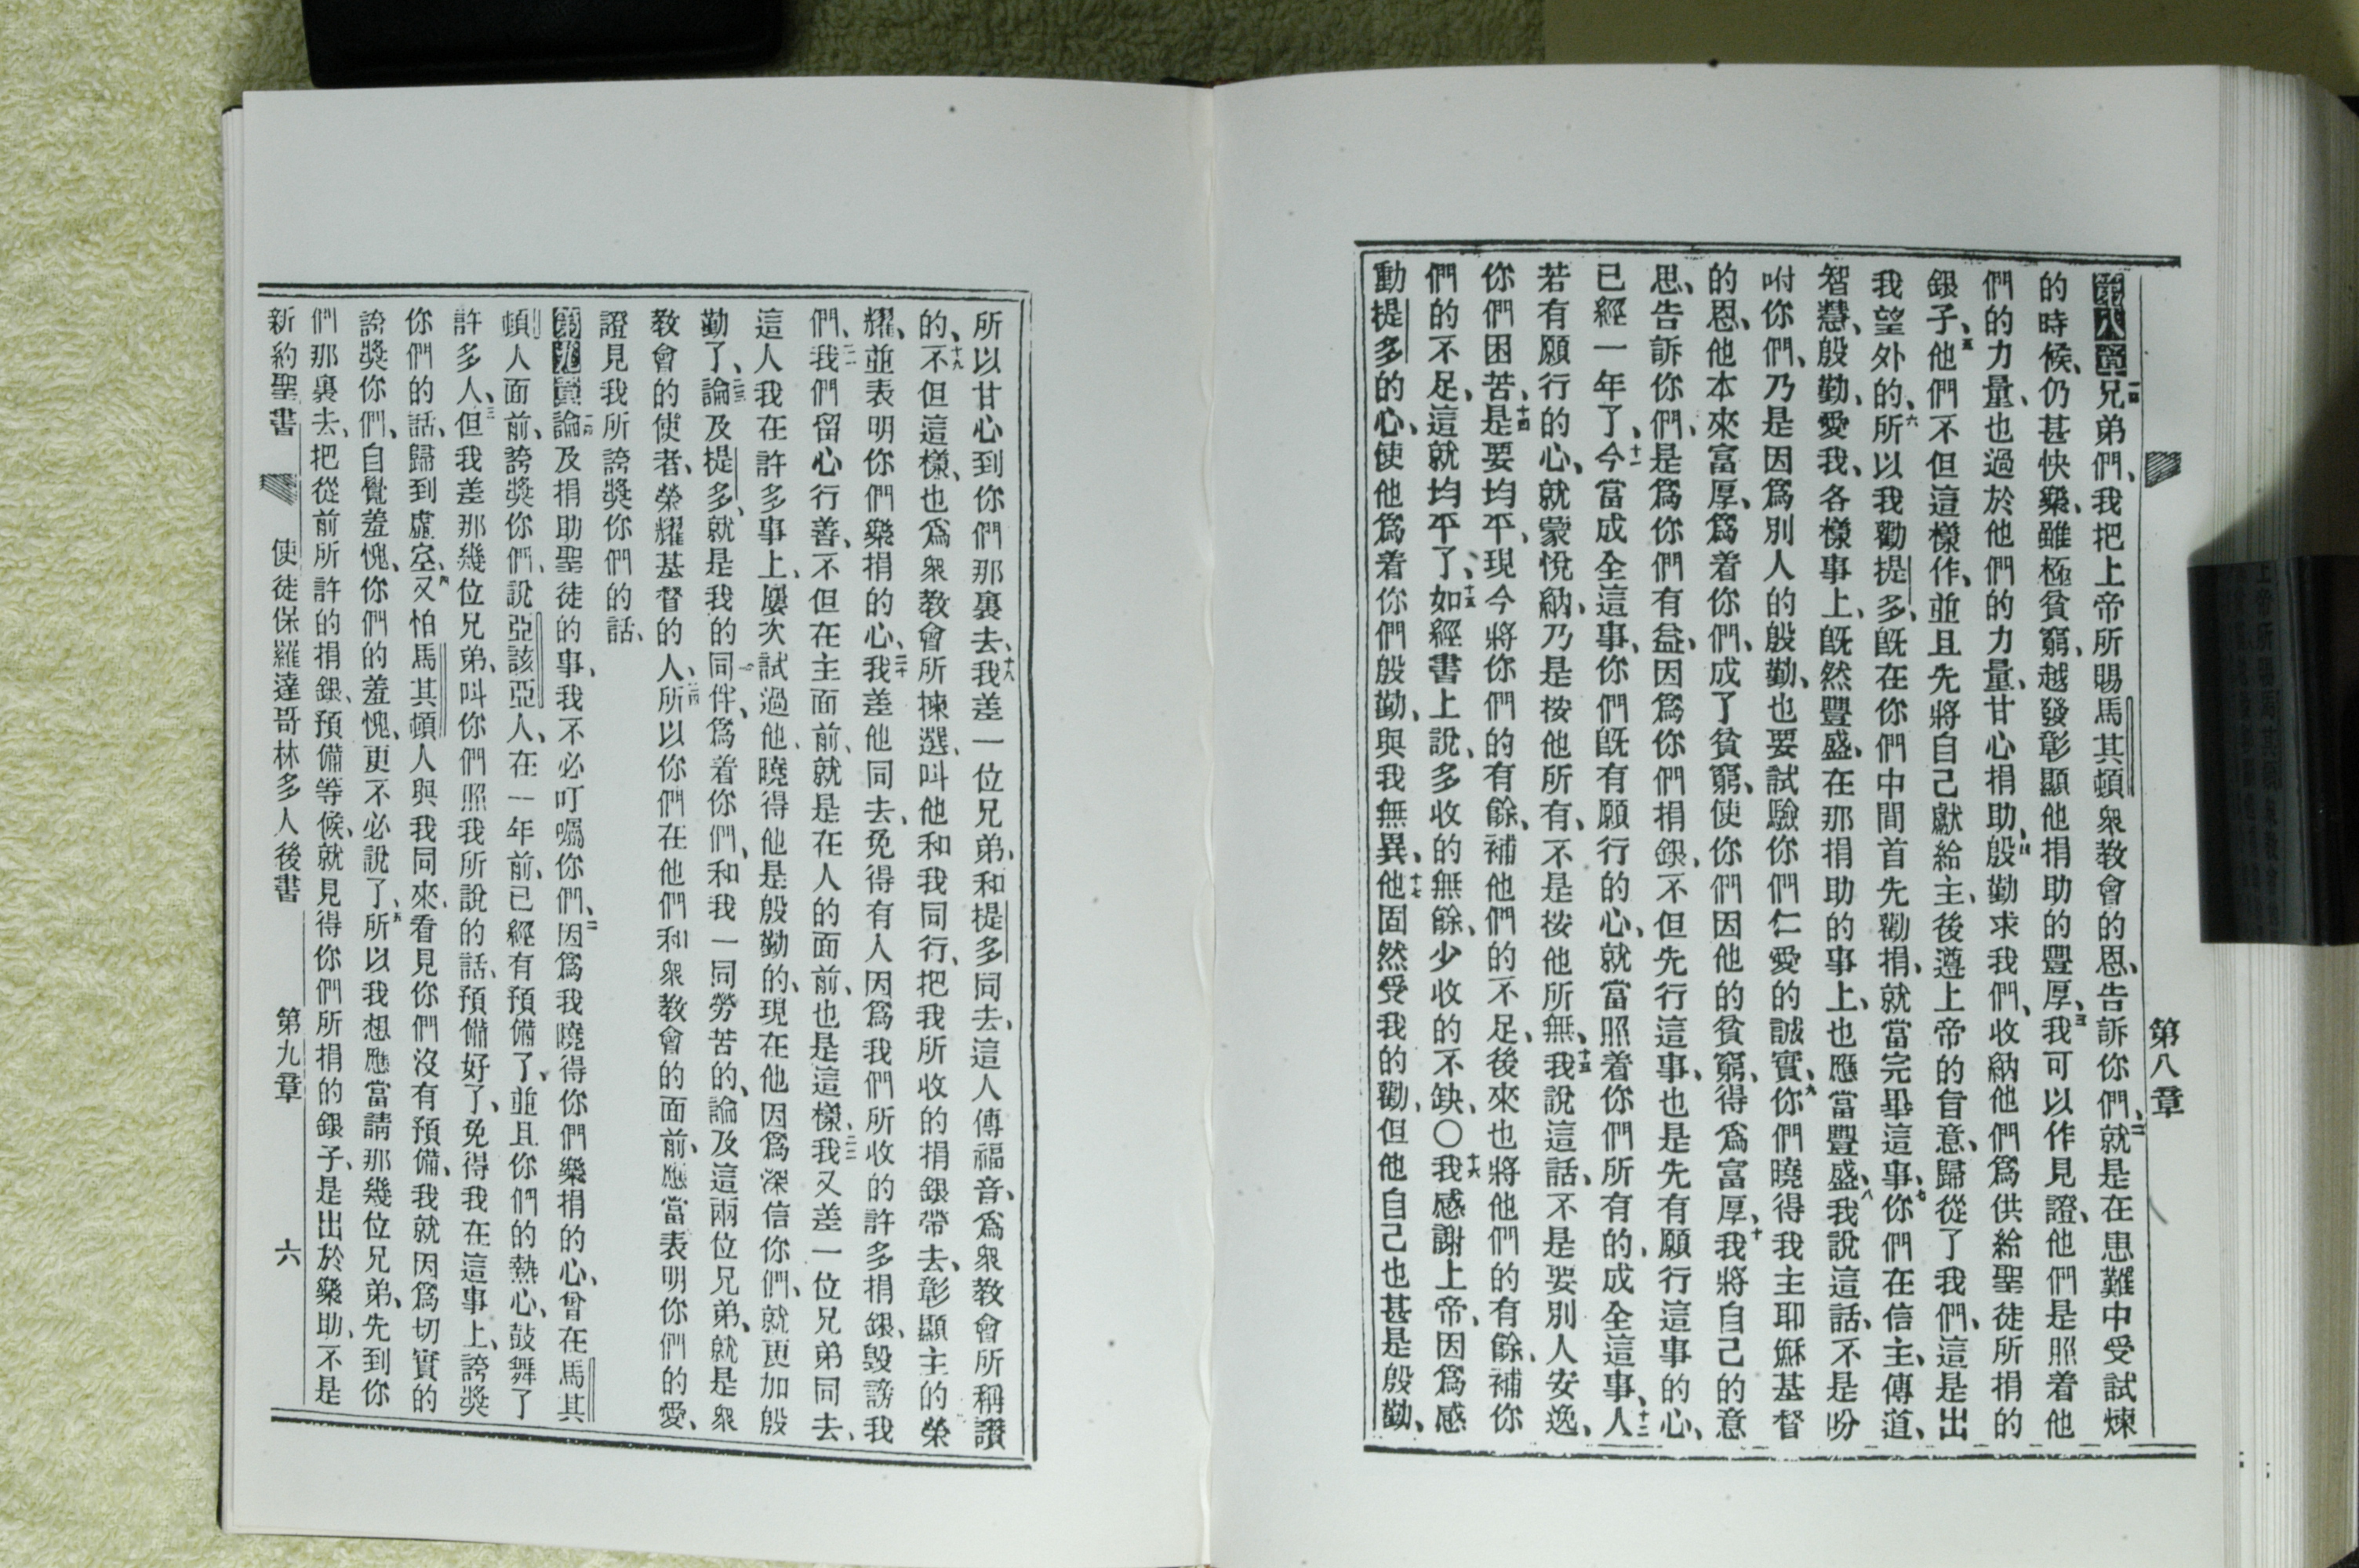 第八章
第八章一兄弟們、我把上帝所賜馬其頓衆教會的恩、告訴你們、二就是在患難中受試煉
的時候、仍甚快樂、雖極貧窮、越發彰顯他捐助的豐厚、三我可以作見證、他們是照着他
們的力量、也過於他們的力量、甘心捐助、四殷勤求我們、收納他們爲供給聖徒所捐的
銀子、五他們不但這樣作、並且先將自己獻給主、後遵上帝的旨意、歸從了我們、這是出
我望外的、六所以我勸提多、旣在你們中間首先勸捐、就當完畢這事、七你們在信主、傳道、
智慧、殷勤、愛我、各樣事上、旣然豐盛、在那捐助的事上、也應當豐盛、八我說這話、不是吩
咐你們、乃是因爲別人的殷勤、也要試驗你們仁愛的誠實、九你們曉得我主耶穌基督
的恩、他本來富厚、爲着你們、成了貧窮、使你們因他的貧窮、得爲富厚、十我將自己的意
思、告訴你們、是爲你們有益、因爲你們捐銀、不但先行這事、也是先有願行這事的心、
已經一年了、十一今當成全這事、你們旣有願行的心、就當照着你們所有的、成全這事、十二人
若有願行的心、就蒙悅納、乃是按他所有、不是按他所無、十三我說這話、不是要別人安逸、
你們困苦、十四是要均平、現今將你們的有餘、補他們的不足、後來也將他們的有餘、補你
們的不足、這就均平了、十五如經書上說、多收的無餘、少收的不缺、○十六我感謝上帝、因爲感
動提多的心、使他爲着你們殷勤、與我無異、十七他固然受我的勸、但他自己也甚是殷勤、
所以甘心到你們那裏去、十八我差一位兄弟、和提多同去、這人傳福音、爲衆教會所稱讚
的、十九不但這樣、也爲衆教會所揀選、叫他和我同行、把我所收的捐銀帶去、彰顯主的榮
耀、並表明你們樂捐的心、二十我差他同去、免得有人因爲我們所收的許多捐銀、毀謗我
們、二一我們留心行善、不但在主面前、就是在人的面前、也是這樣、二二我又差一位兄弟同去、
這人我在許多事上、屢次試過他、曉得他是殷勤的、現在他因爲深信你們、就更加殷
勤了、二三論及提多、就是我的同伴、爲着你們、和我一同勞苦的、論及這兩位兄弟、就是衆
教會的使者、榮耀基督的人、二四所以你們在他們和衆教會的面前、應當表明你們的愛、
證見我所誇獎你們的話、
第九章一論及捐助聖徒的事、我不必叮囑你們、二因爲我曉得你們樂捐的心、曾在馬其
頓人面前、誇獎你們、說亞該亞人、在一年前、已經有預備了、並且你們的熱心、鼓舞了
許多人、三但我差那幾位兄弟、叫你們照我所說的話、預備好了、免得我在這事上、誇獎
你們的話、歸到虛空、四又怕馬其頓人與我同來、看見你們沒有預備、我就因爲切實的
誇獎你們、自覺羞愧、你們的羞愧、更不必說了、五所以我想應當請那幾位兄弟、先到你
們那裏去、把從前所許的捐銀、預備等候、就見得你們所捐的銀子、是出於樂助、不是
新約聖書 使徒保羅達哥林多人後書 第九章 六